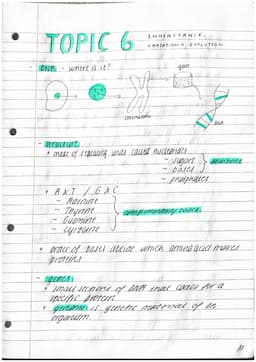 TOPIC 6 INHERITANCE,
VARIATION & EVOLUTION
- DNA - where is it?
gene
chromosome
DNA
- structure
* made of repeating units called nucleotides
- sugars
- bases
- phosphates
* A & T / G & C
- Adenine
- Thymine
- Guanine
- Cytosine
complementary bases
* order of bases decide which amino acid makes
proteins
- genes
* small sections of DNA that codes for a
specific protein
* genome is genetic material of an
organism